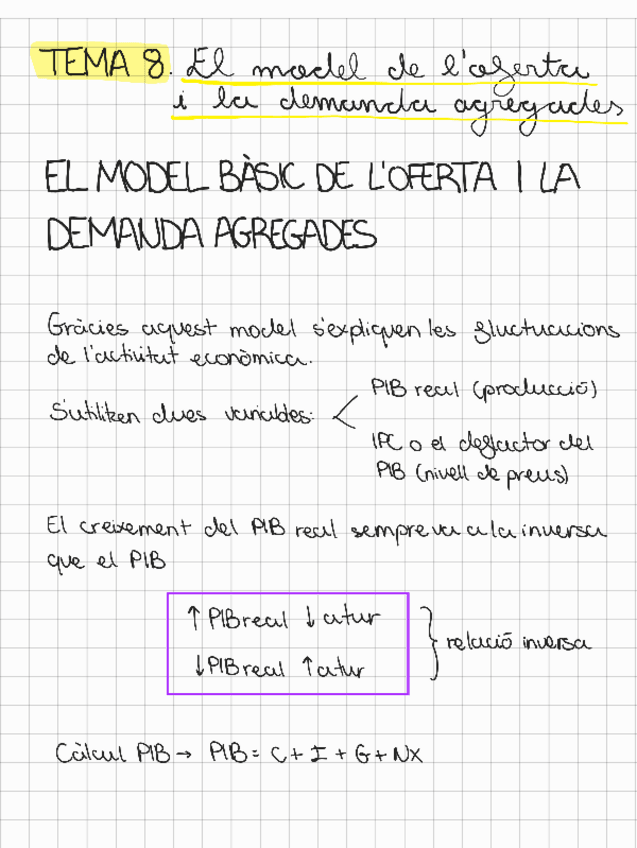 TEMA 8. El model de l'oferta
i la demanda agregades
EL MODEL BÀSIC DE L'OFERTA I LA
DEMANDA AGREGADES
Gràcies aquest model s'expliquen les fluctuacions
de l'activitat econòmica.
S'utilitzen dues variables:
PIB real (producció)
IPC o el deflactor del
PIB (nivell de preus)
El creixement del PIB real sempre va a la inversa
que el PIB
↑ PIB real ↓ atur
↓ PIB real ↑ atur
relació inversa
Càlcul PIB → PIB = C + I + G + NX